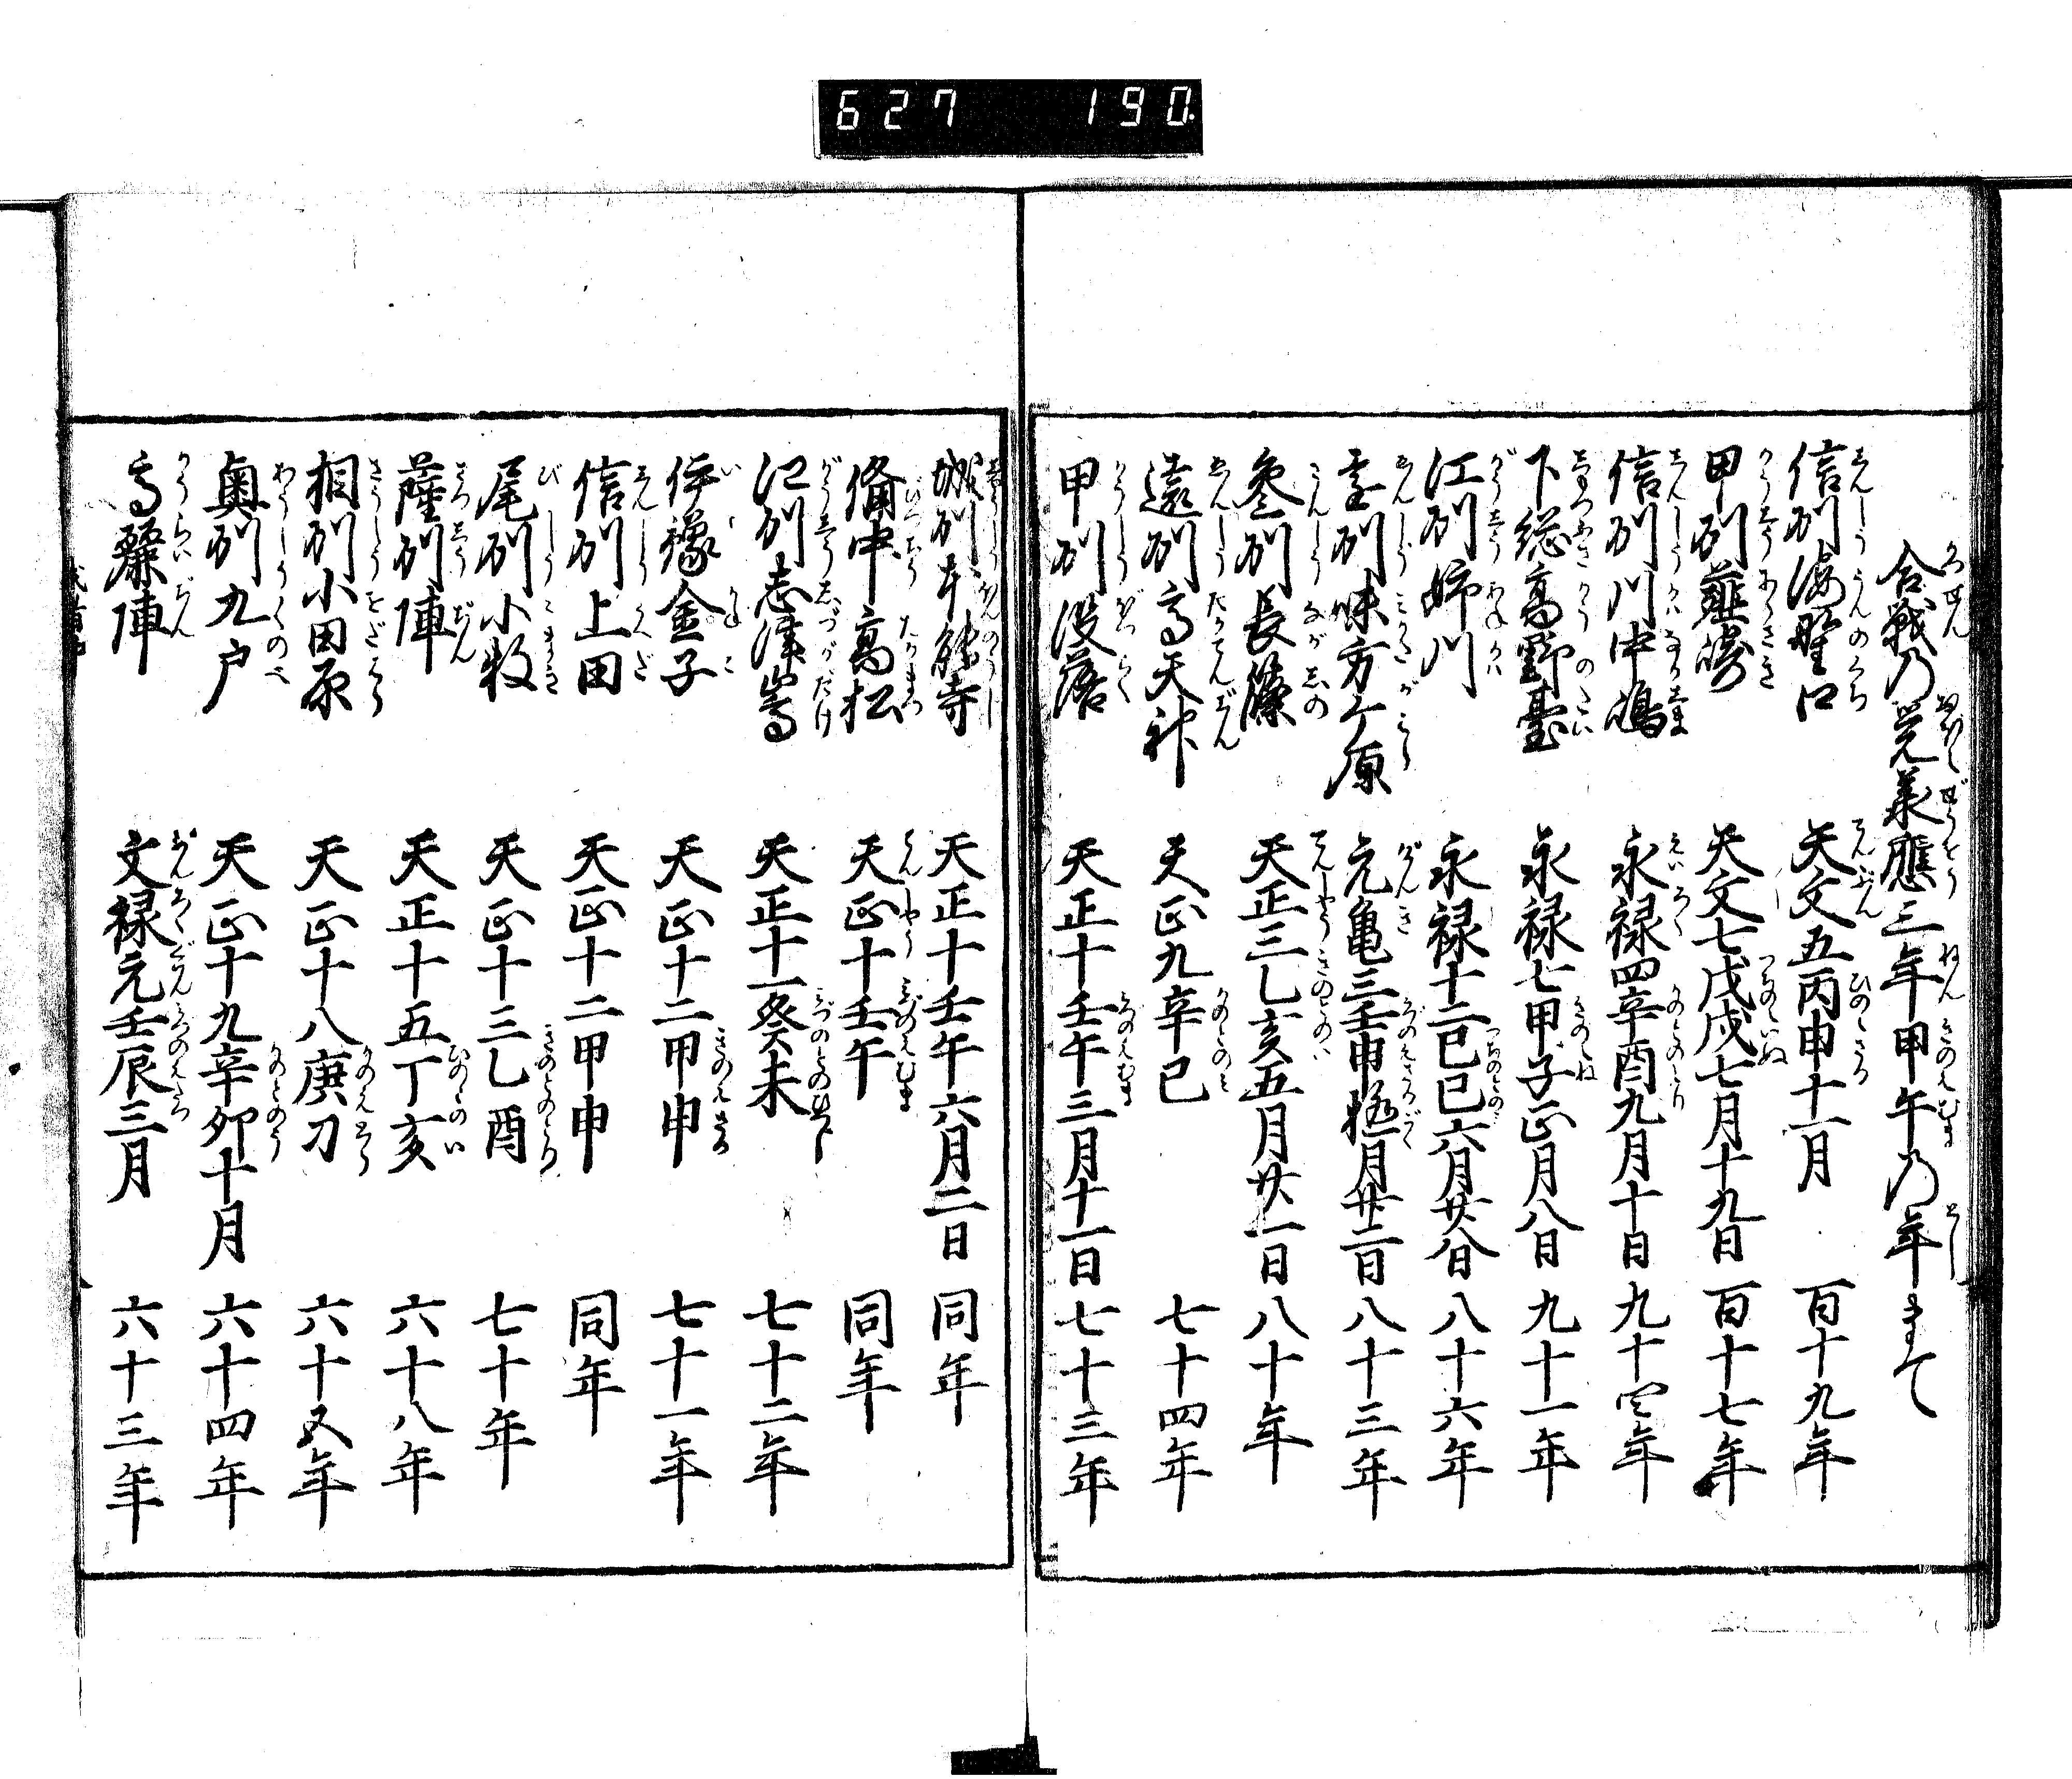 627 190
合戦乃覚承應三年甲午乃年まて
信州海野口 天文五丙申十一月 百十九年
甲州韮崎 天文七戊戌七月十九日 百十七年
信州川中嶋 永禄四辛酉九月十日 九十四年
下総高野臺 永禄七甲子正月八日 九十一年
江州姉川 永禄十二己巳六月廿八日 八十六年
遠州味方ケ原 元亀三壬申極月廿二日 八十三年
参州長篠 天正三乙亥五月廿一日 八十年
遠州高天神 天正九辛巳 七十四年
甲州没落 天正十壬午三月十一日 七十三年
城州本能寺 天正十壬午六月二日 同年
備中高松 天正十壬午 同年
江州志津嵩 天正十一癸未 七十二年
伊豫金子 天正十二甲申 七十一年
信州上田 天正十二甲申 同年
尾州小牧 天正十三乙酉 七十年
薩州陣 天正十五丁亥 六十八年
相州小田原 天正十八庚刀 六十五年
奥州九戸 天正十九辛卯十月 六十四年
高麗陣 文禄元壬辰三月 六十三年